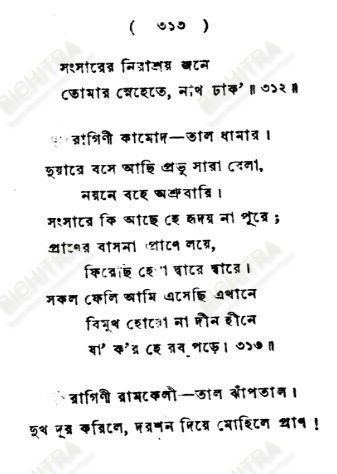 ( ৩১৩ )
সংসারের নিরাশ্রয় জনে
তোমার স্নেহেতে, নাথ ঢাক' ॥ ৩১২ ॥
রাগিণী কামোদ—তাল ধামার ।
দুয়ারে বসে আছি প্রভু সারা বেলা,
নয়নে বহে অশ্রুবারি ।
সংসারে কি আছে হে হৃদয় না পূরে ;
প্রাণের বাসনা প্রাণে লয়ে,
ফিরেছি হেথা দ্বারে দ্বারে ।
সকল ফেলি আমি এসেছি এখানে
বিমুখ হোয়ো না দীন হীনে
যা' ক'র হে রব পড়ে । ৩১৩ ॥
রাগিণী রামকেলী—তাল ঝাঁপতাল ।
দুখ দূর করিলে, দরশন দিয়ে মোহিলে প্রাণ !
BICHITRA